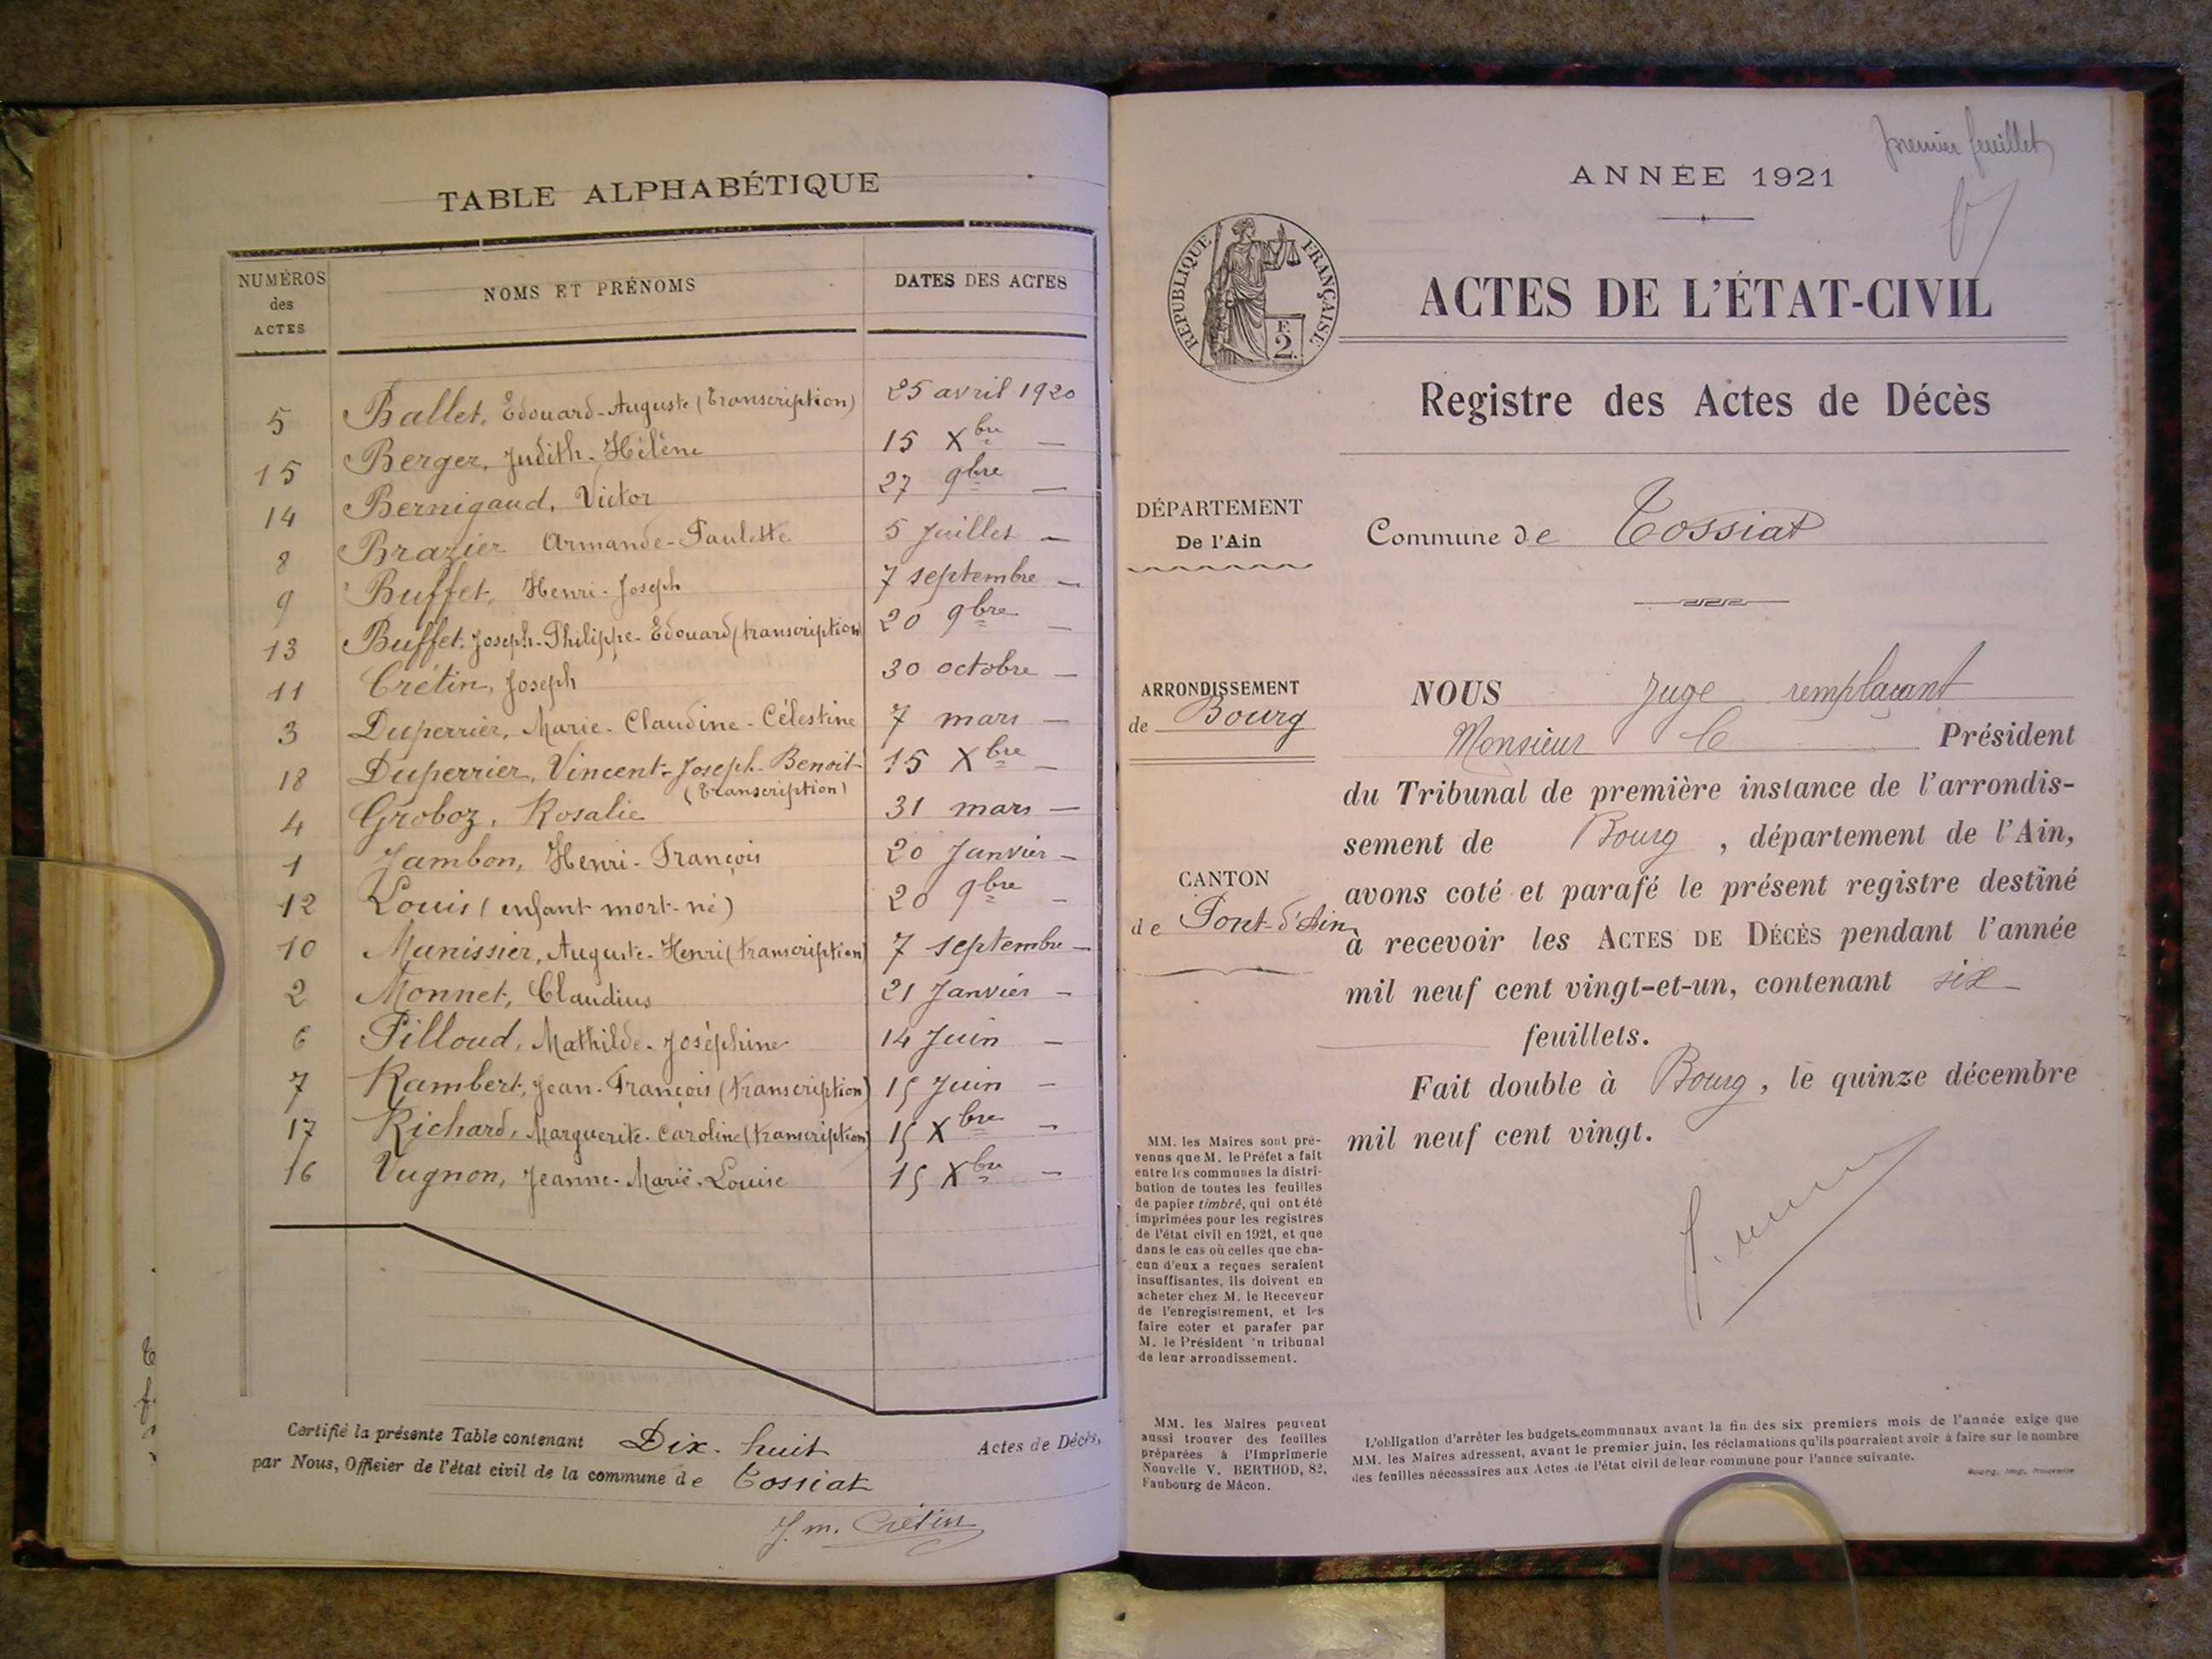 TABLE ALPHABÉTIQUE
NUMÉROS
des
ACTES
NOMS ET PRÉNOMS
DATES DES ACTES
5 Ballet, Edouard-Auguste (transcription) 25 avril 1920
15 Berger, Judith-Hélène 15 Xbre —
14 Bernigaud, Victor 27 9bre —
8 Brazier Armande-Paulette 5 Juillet —
9 Buffet, Henri-Joseph 7 septembre —
13 Buffet, Joseph-Philippe-Edouard (transcription) 20 9bre —
11 Crétin, Joseph 30 octobre —
3 Duperrier, Marie-Claudine-Célestine 7 mars —
18 Duperrier, Vincent-Joseph-Benoit 15 Xbre —
(transcription)
4 Groboz, Rosalie 31 mars —
1 Jambon, Henri-François 20 Janvier —
12 Louis (enfant mort-né) 20 9bre —
10 Manissier, Auguste-Henri (transcription) 7 septembre —
2 Monnet, Claudius 21 Janvier —
6 Pilloud, Mathilde-Joséphine 14 Juin —
7 Rambert, Jean-François (transcription) 15 Juin —
17 Richard, Marguerite-Caroline (transcription) 15 Xbre —
16 Vugnon, Jeanne-Marie-Louise 15 Xbre —
Certifié la présente Table contenant Dix-huit Actes de Décès,
par Nous, Officier de l'état civil de la commune de Tossiat
J. m. Crétin
premier feuillet
ANNÉE 1921
RÉPUBLIQUE FRANÇAISE
F.
2.
ACTES DE L'ÉTAT-CIVIL
Registre des Actes de Décès
DÉPARTEMENT
De l'Ain
Commune de Tossiat
ARRONDISSEMENT
de Bourg
CANTON
de Pont-d'Ain
NOUS Juge remplaçant
Monsieur le Président
du Tribunal de première instance de l'arrondis-
sement de Bourg, département de l'Ain,
avons coté et parafé le présent registre destiné
à recevoir les ACTES DE DÉCÈS pendant l'année
mil neuf cent vingt-et-un, contenant six
feuillets.
Fait double à Bourg, le quinze décembre
mil neuf cent vingt.
MM. les Maires sont pré-
venus que M. le Préfet a fait
entre les communes la distri-
bution de toutes les feuilles
de papier timbré, qui ont été
imprimées pour les registres
de l'état civil en 1921, et que
dans le cas où celles que cha-
cun d'eux a reçues seraient
insuffisantes, ils doivent en
acheter chez M. le Receveur
de l'enregistrement, et les
faire coter et parafer par
M. le Président du tribunal
de leur arrondissement.
MM. les Maires peuvent
aussi trouver des feuilles
préparées à l'Imprimerie
Nouvelle V. BERTHOD, 82,
Faubourg de Mâcon.
L'obligation d'arrêter les budgets communaux avant la fin des six premiers mois de l'année exige que
MM. les Maires adressent, avant le premier juin, les réclamations qu'ils pourraient avoir à faire sur le nombre
des feuilles nécessaires aux Actes de l'état civil de leur commune pour l'année suivante.
Bourg, Imp. Nouvelle